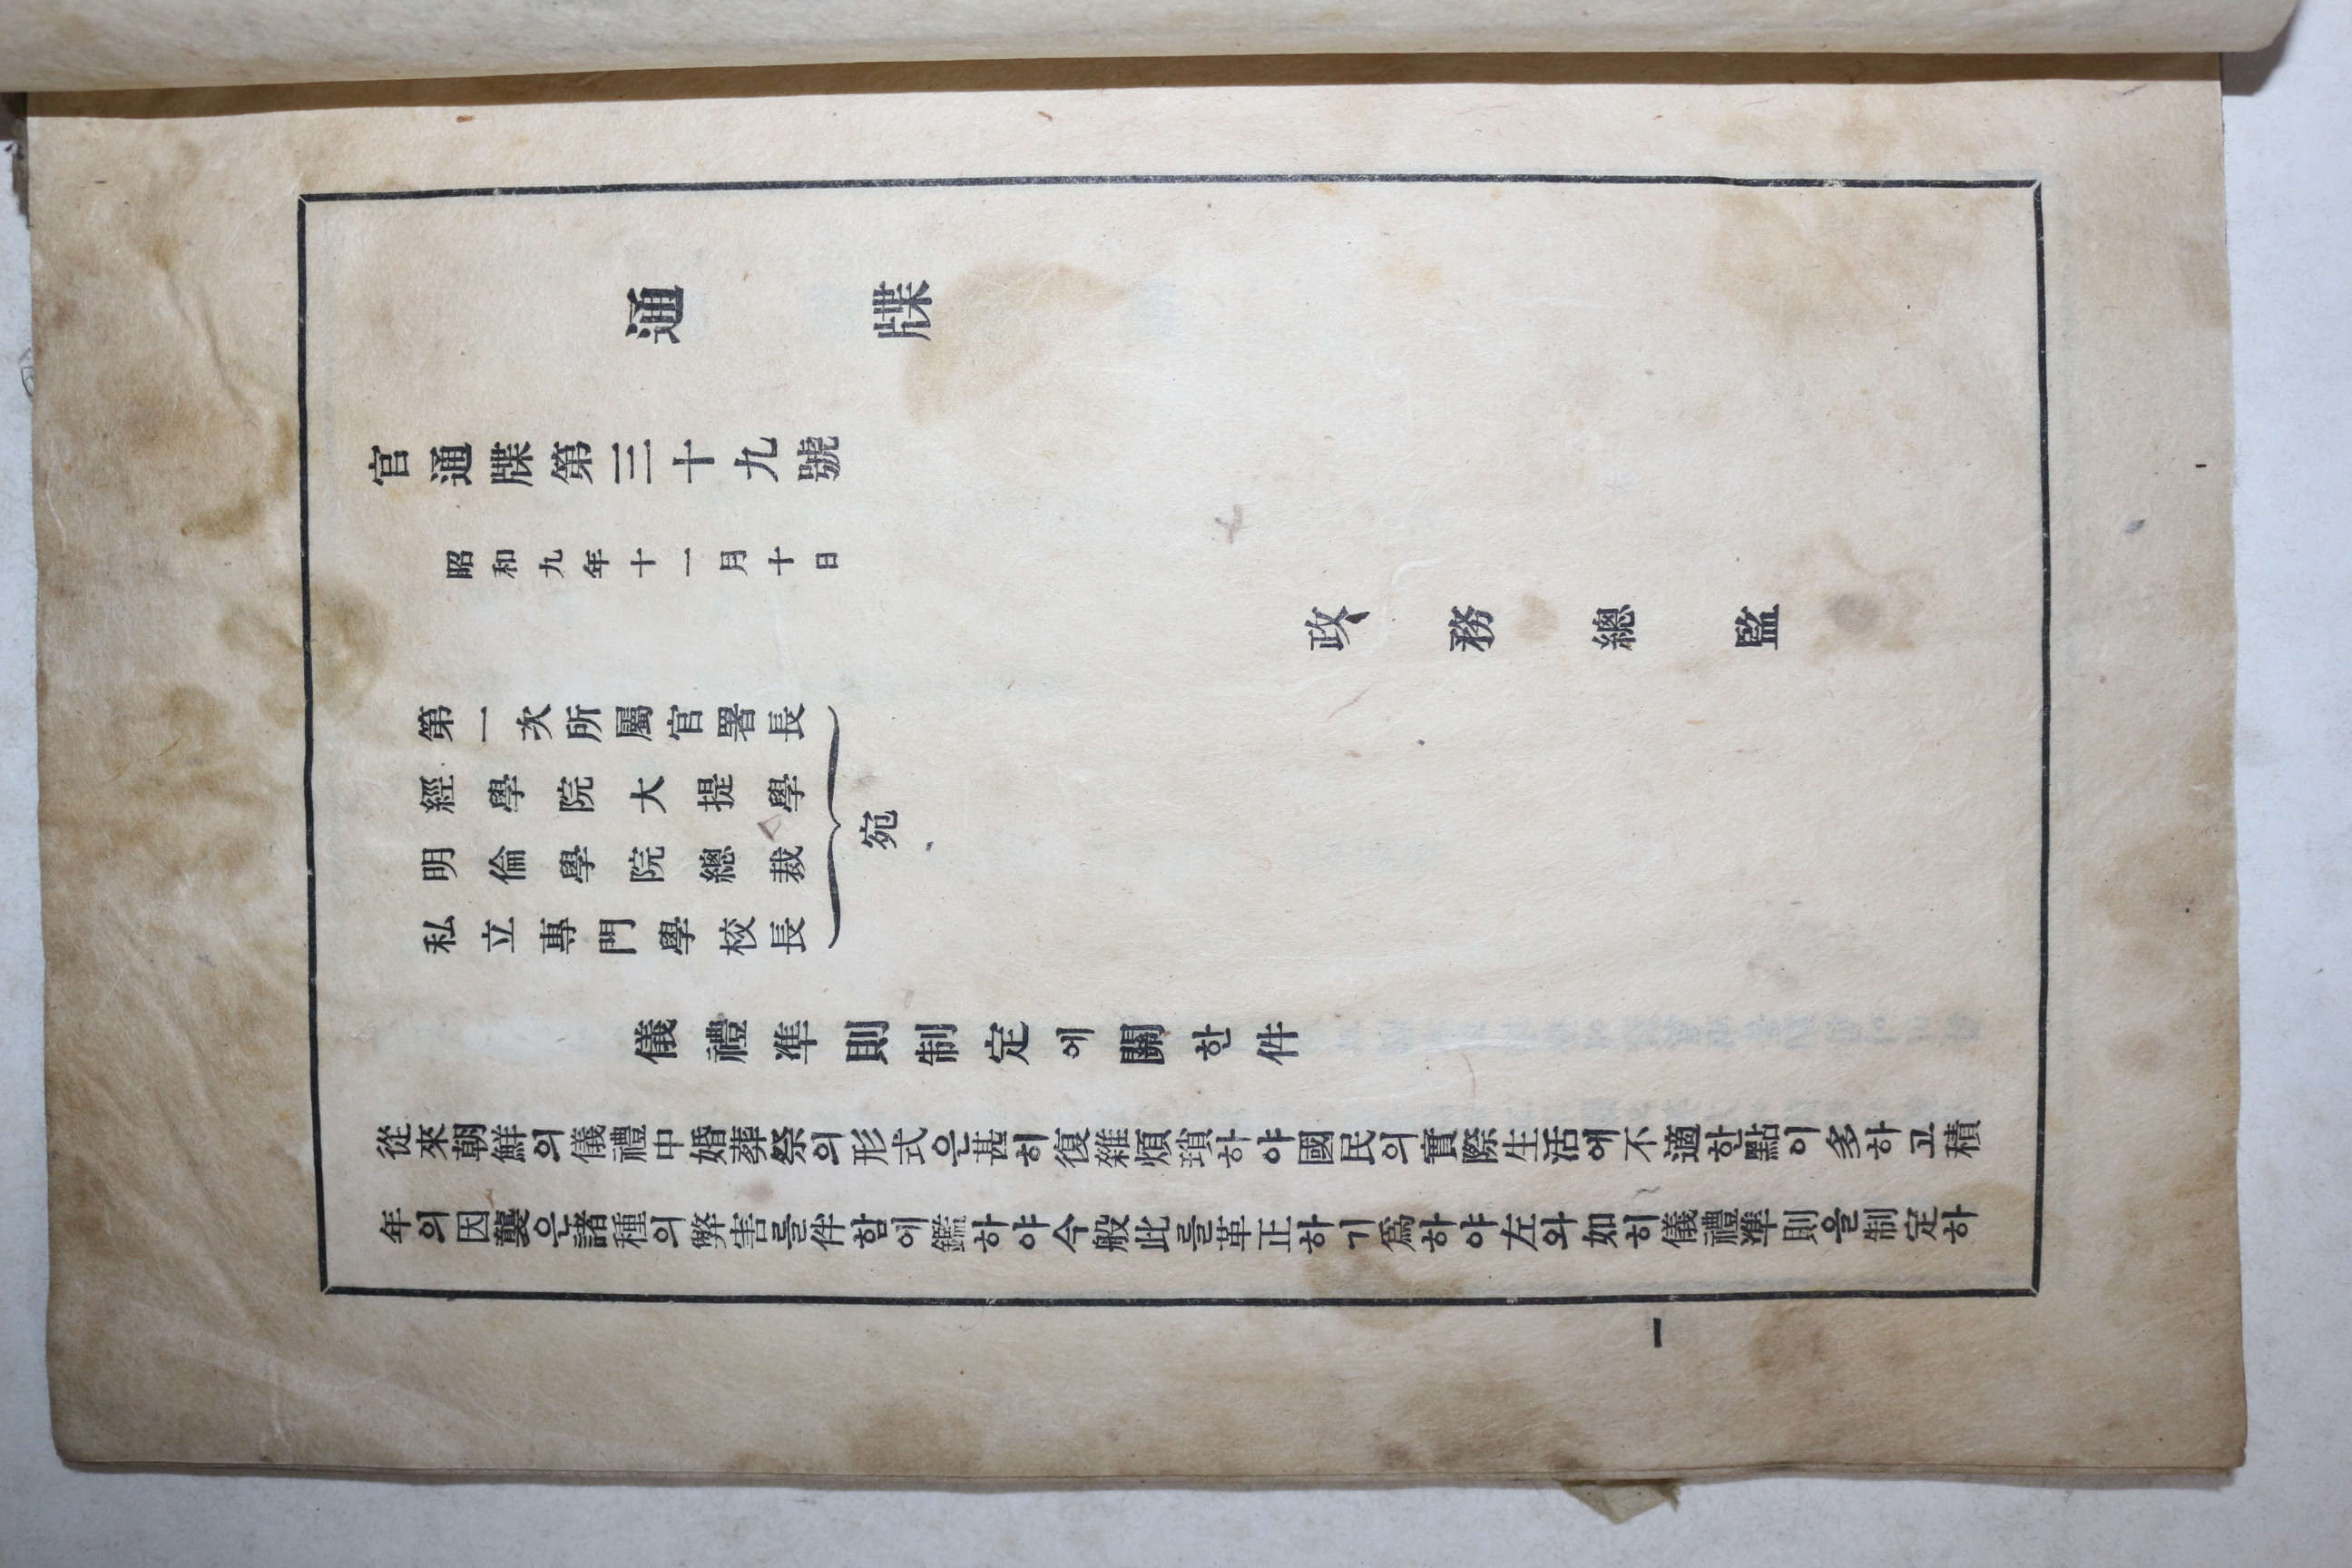 通牒
官通牒第三十九號
昭和九年十一月十日
政務總監
第一次所屬官署長
經學院大提學
明倫學院總裁
私立專門學校長
宛
儀禮準則制定에關한件
從來朝鮮의儀禮中婚葬祭의形式은甚히復雜煩瑣하야國民의實際生活에不適한點이多하고積
年의因襲은諸種의弊害를件함에鑑하야今般此를革正하기爲하야左와如히儀禮準則을制定하
一